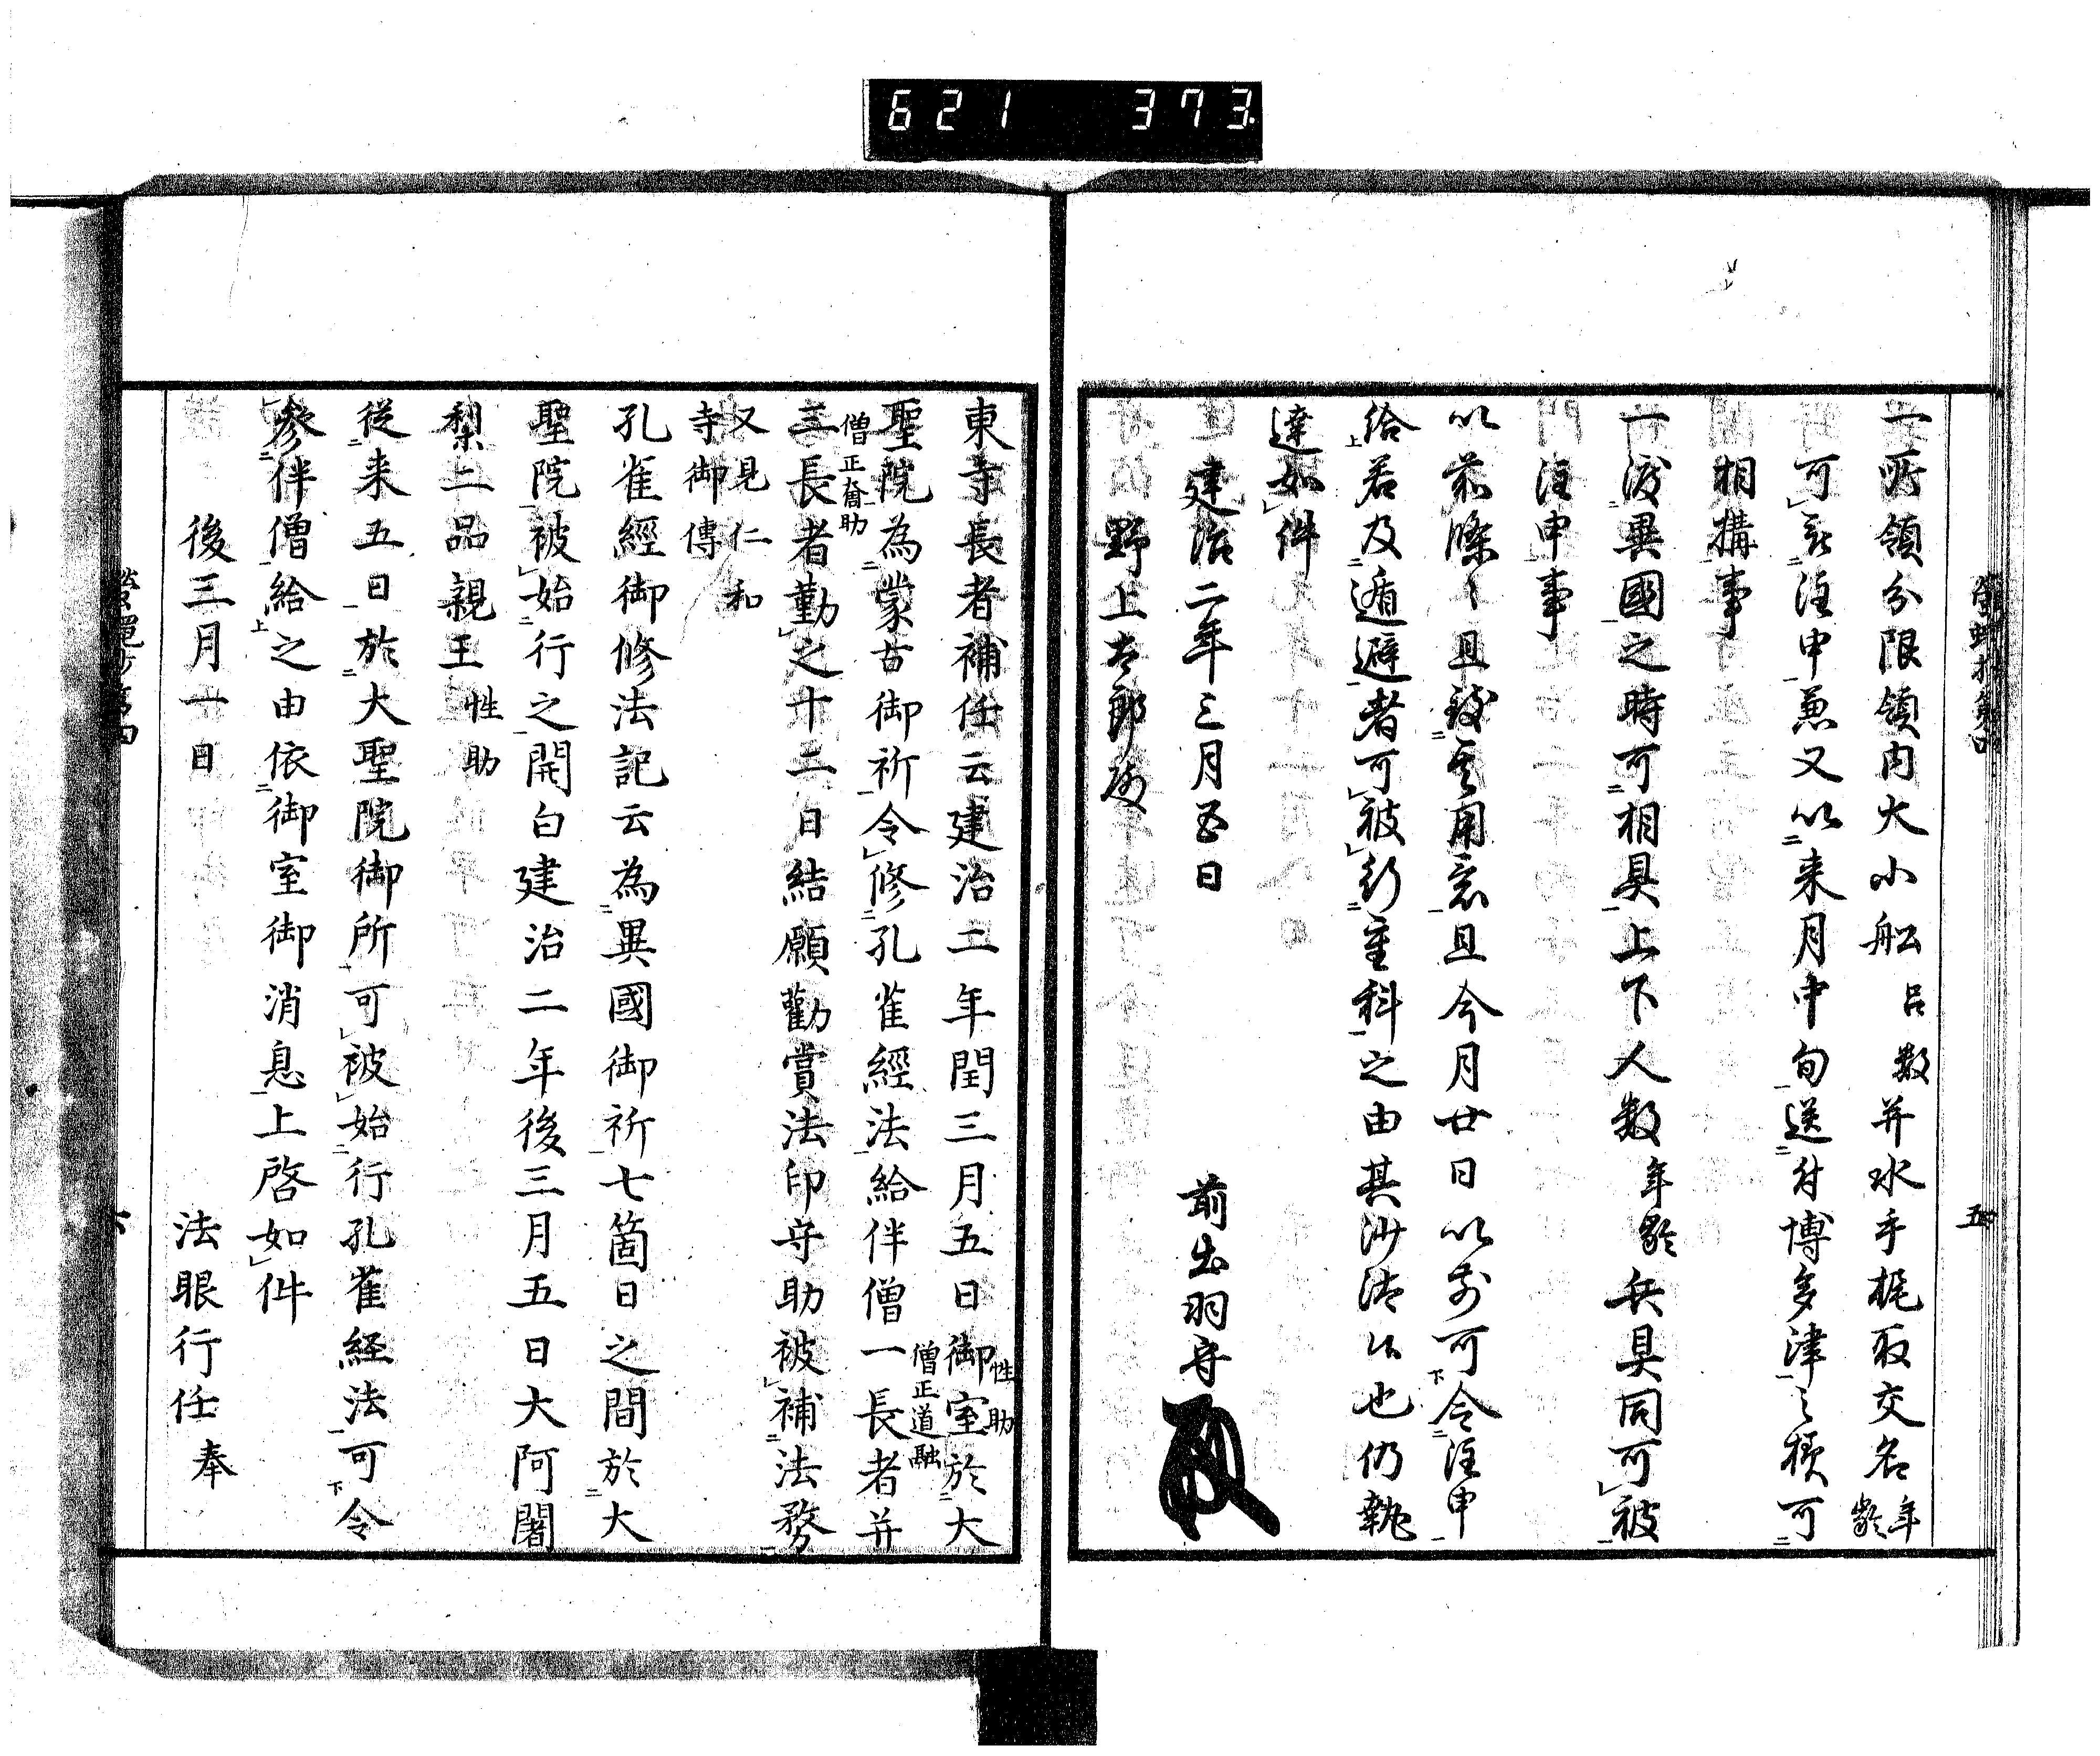 621 373
一所領分限領内大小船呂数并水手梶取交名年齢
可注申兼又以来月中旬送付博多津之様可
相構事
一渡異國之時可相具上下人数年齢兵具同可被
注申事
以前條々且致其用意且今月廿日以前可令注申
給若及遁避者可被行重科之由其沙汰候也仍執
達如件
建治二年三月五日
前出羽守
野上太郎殿
五
東寺長者補任云建治二年閏三月五日御室性助於大
聖院為蒙古御祈令修孔雀經法給伴僧一長者僧正道融并
三長者僧正奝助勤之十二日結願勸賞法印守助被補法務
又見仁和
寺御傳
孔雀經御修法記云為異國御祈七箇日之間於大
聖院被始行之開白建治二年後三月五日大阿闍
梨二品親王性助
従来五日於大聖院御所可被始行孔雀経法可令
參伴僧給之由依御室御消息上啓如件
後三月一日
法眼行任奉
六